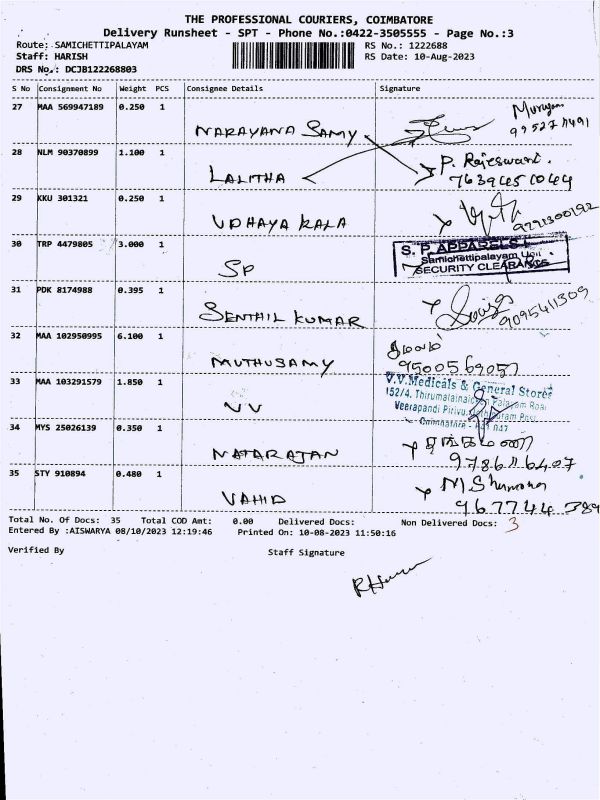 THE PROFESSIONAL COURIERS, COIMBATORE
Delivery Runsheet - SPT - Phone No.:0422-3505555 - Page No.:3
Route: SAMICHETTIPALAYAM RS No.: 1222688
Staff: HARISH RS Date: 10-Aug-2023
DRS No.: DCJB122268803
S No Consignment No Weight PCS Consignee Details Signature
27 MAA 569947189 0.250 1
NARAYANA SAMY Murugan
28 NLM 90370899 1.100 1 P. Rajeswari.
LALITHA 7639451044
29 KKU 301321 0.250 1
UDHAYA KALA 9291300192
30 TRP 4479805 3.000 1 S. P. APPARELS
Samichettipalayam Unit
SP SECURITY CLEARANCE
31 PDK 8174988 0.395 1
SENTHIL KUMAR 9095411309
32 MAA 102950995 6.100 1 கமலம்
MUTHUSAMY 9500569057
33 MAA 103291579 1.850 1 V.V.Medicals & General Stores
152/4, Thirumalainaicken Palayam Road
VV Veerapandi Pirivu,
34 MYS 25026139 0.350 1 Coimbatore - 641 047
தங்கமணி
NATARAJAN
35 STY 910894 0.480 1
VAHID
Total No. Of Docs: 35 Total COD Amt: 0.00 Delivered Docs: Non Delivered Docs: 3
Entered By :AISWARYA 08/10/2023 12:19:46 Printed On: 10-08-2023 11:50:16
Verified By Staff Signature